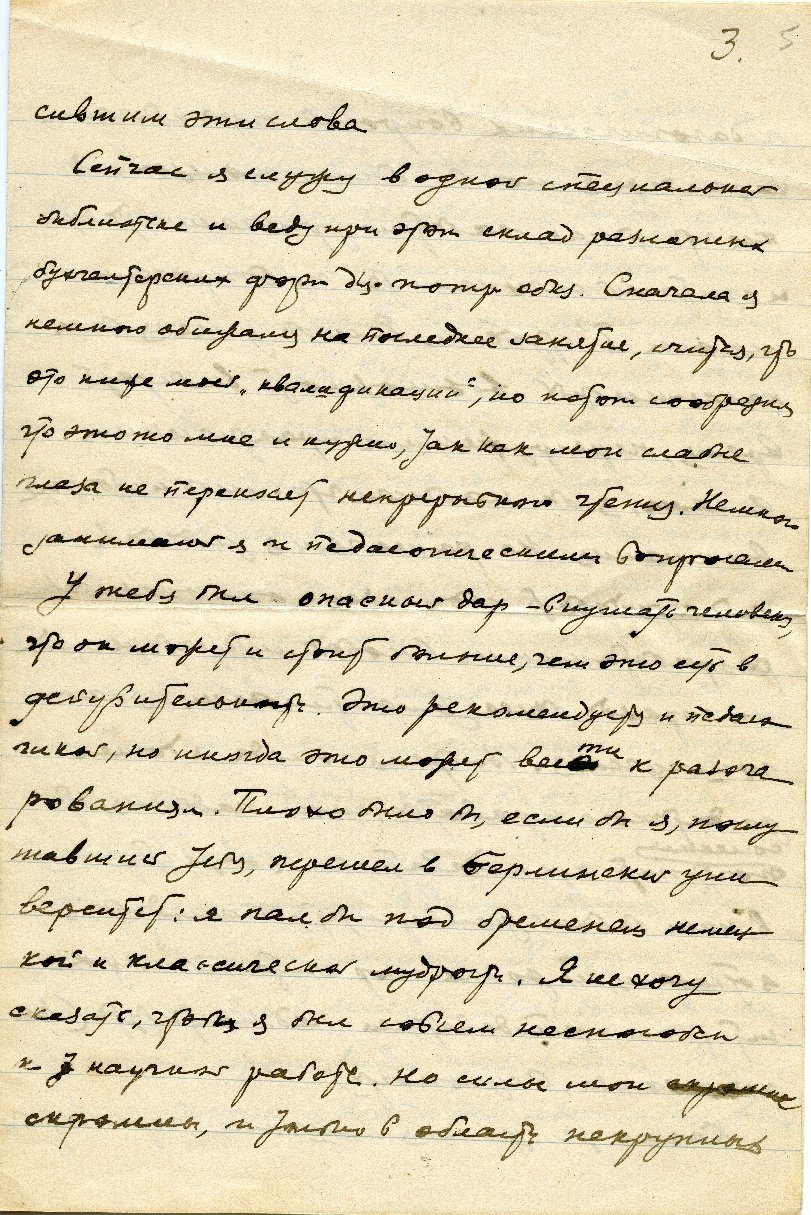 3. 5
сившим эти слова
Сейчас я служу в одной специальной
библиотеке и веду при этом склад различных
бухгалтерских форм для потреб
Сначала я
немного обижался на последнее занятие, считая, что
это ниже моей „квалификации“, но потом сообразил
что это то мне и нужно, так как мои слабые
глаза не переносят непрерывного чтения. Немного
занимаюсь я и педагогическими вопросами
У тебя был опасный дар – внушать человеку,
что он может и стоит больше, чем это есть в
действительности. Это рекомендуется и педаго
гикой, но иногда это может вести к разоча
рованиям. Плохо было бы, если бы я, послу
шавшись тебя, перешел в Берлинский уни
верситет: я пал бы под бременем немец
кой и классической мудрости. Я не хочу
сказать, чтобы я был совсем неспособен
к научной работе. Но силы мои
скромны, и только в области некрупных